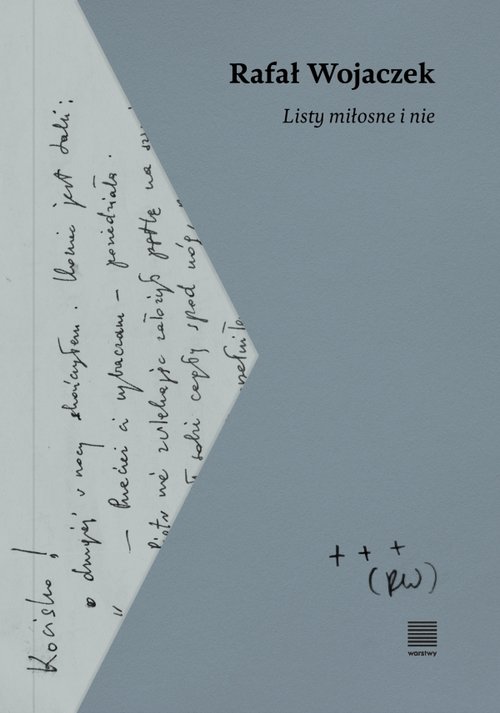 Rafał Wojaczek
Listy miłosne i nie
Kocisko!
o drugiej w nocy skończyłem. Koniec jest taki:
" — Przecież ci wybaczam — powiedziała.
Piotr nie zwlekając założył pętlę na
sobie spod nóg,
+ + +
(RW)
warstwy